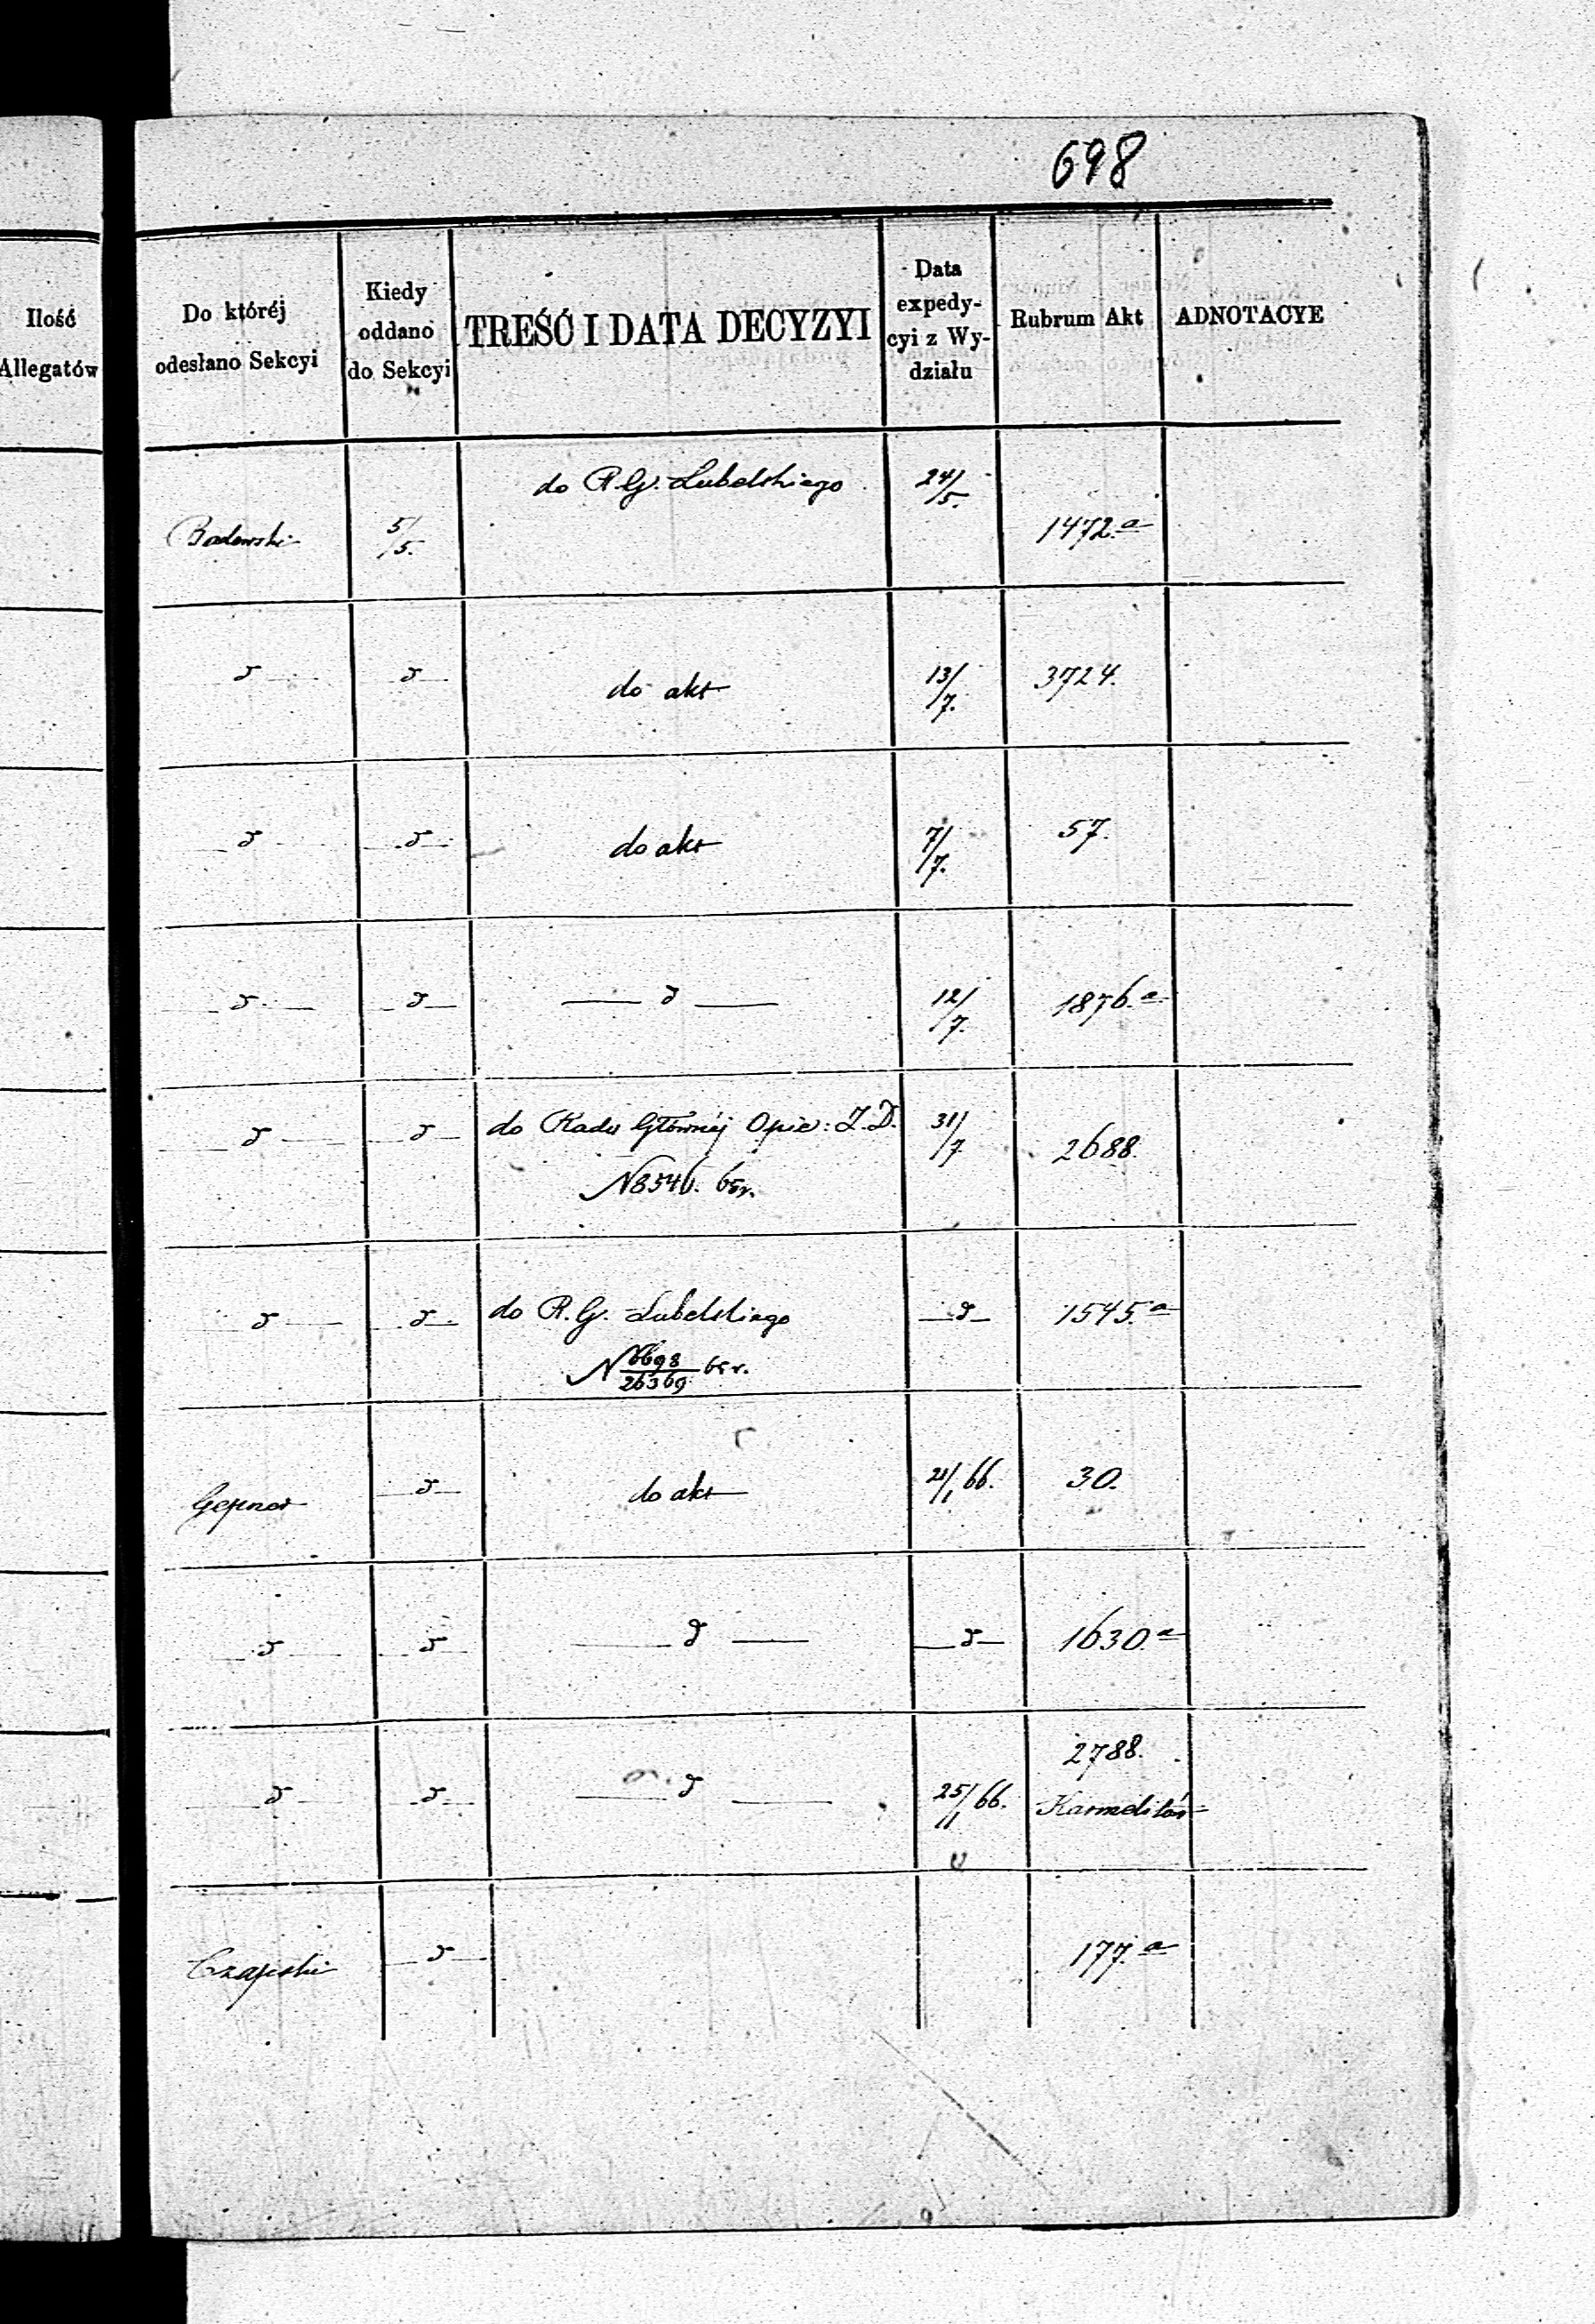 698
Ilość
Allegatów
Do któréj
odesłano Sekcyi
Kiedy
oddano
do Sekcyi
TREŚĆ I DATA DECYZYI
Data
expedy-
cyi z Wy-
działu
Rubrum Akt
ADNOTACYE
5/5. do R.G. Lubelskiego 24/5. 1472.a
d d do akt 13/7. 3724.
d d do akt 7/7. 57.
d d d 12/7. 1876.a
d d do Rady Głównéj Opie: Z.D. 31/7 2688.
N 8546. 65 r.
d d do R.G. Lubelskiego d 1545.a
N 6698/26369 65 r.
d do akt 21/1 66. 30.
d d d d 1630.a
2788.
d d d 25/11 66. Karmelitów
Czapski d 177.a